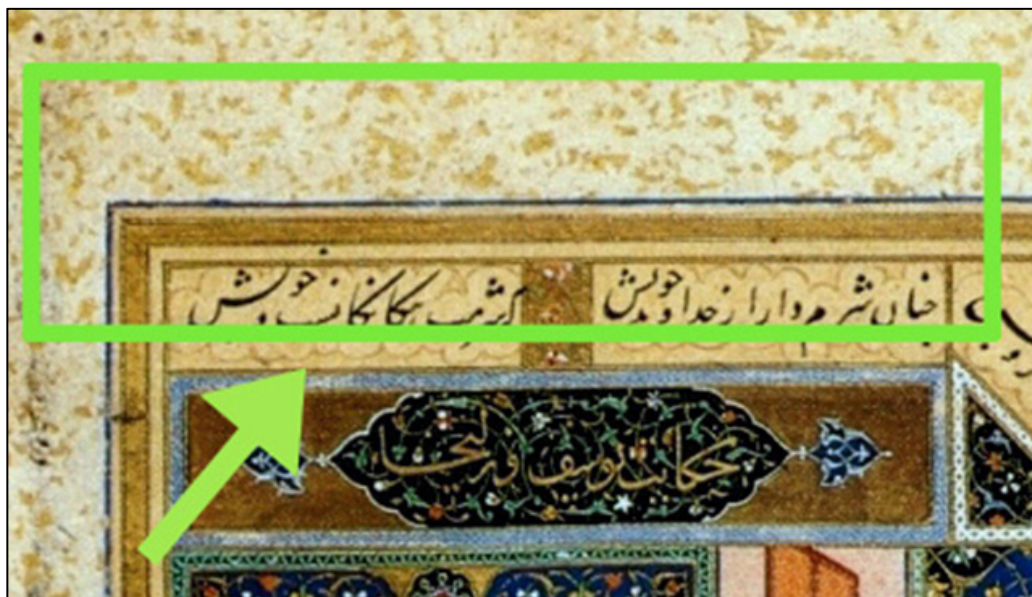 چنان شرم دار از خداوند خویش که شرمت ز بیگانگانست و خویش
حکایت یوسف و زلیخا